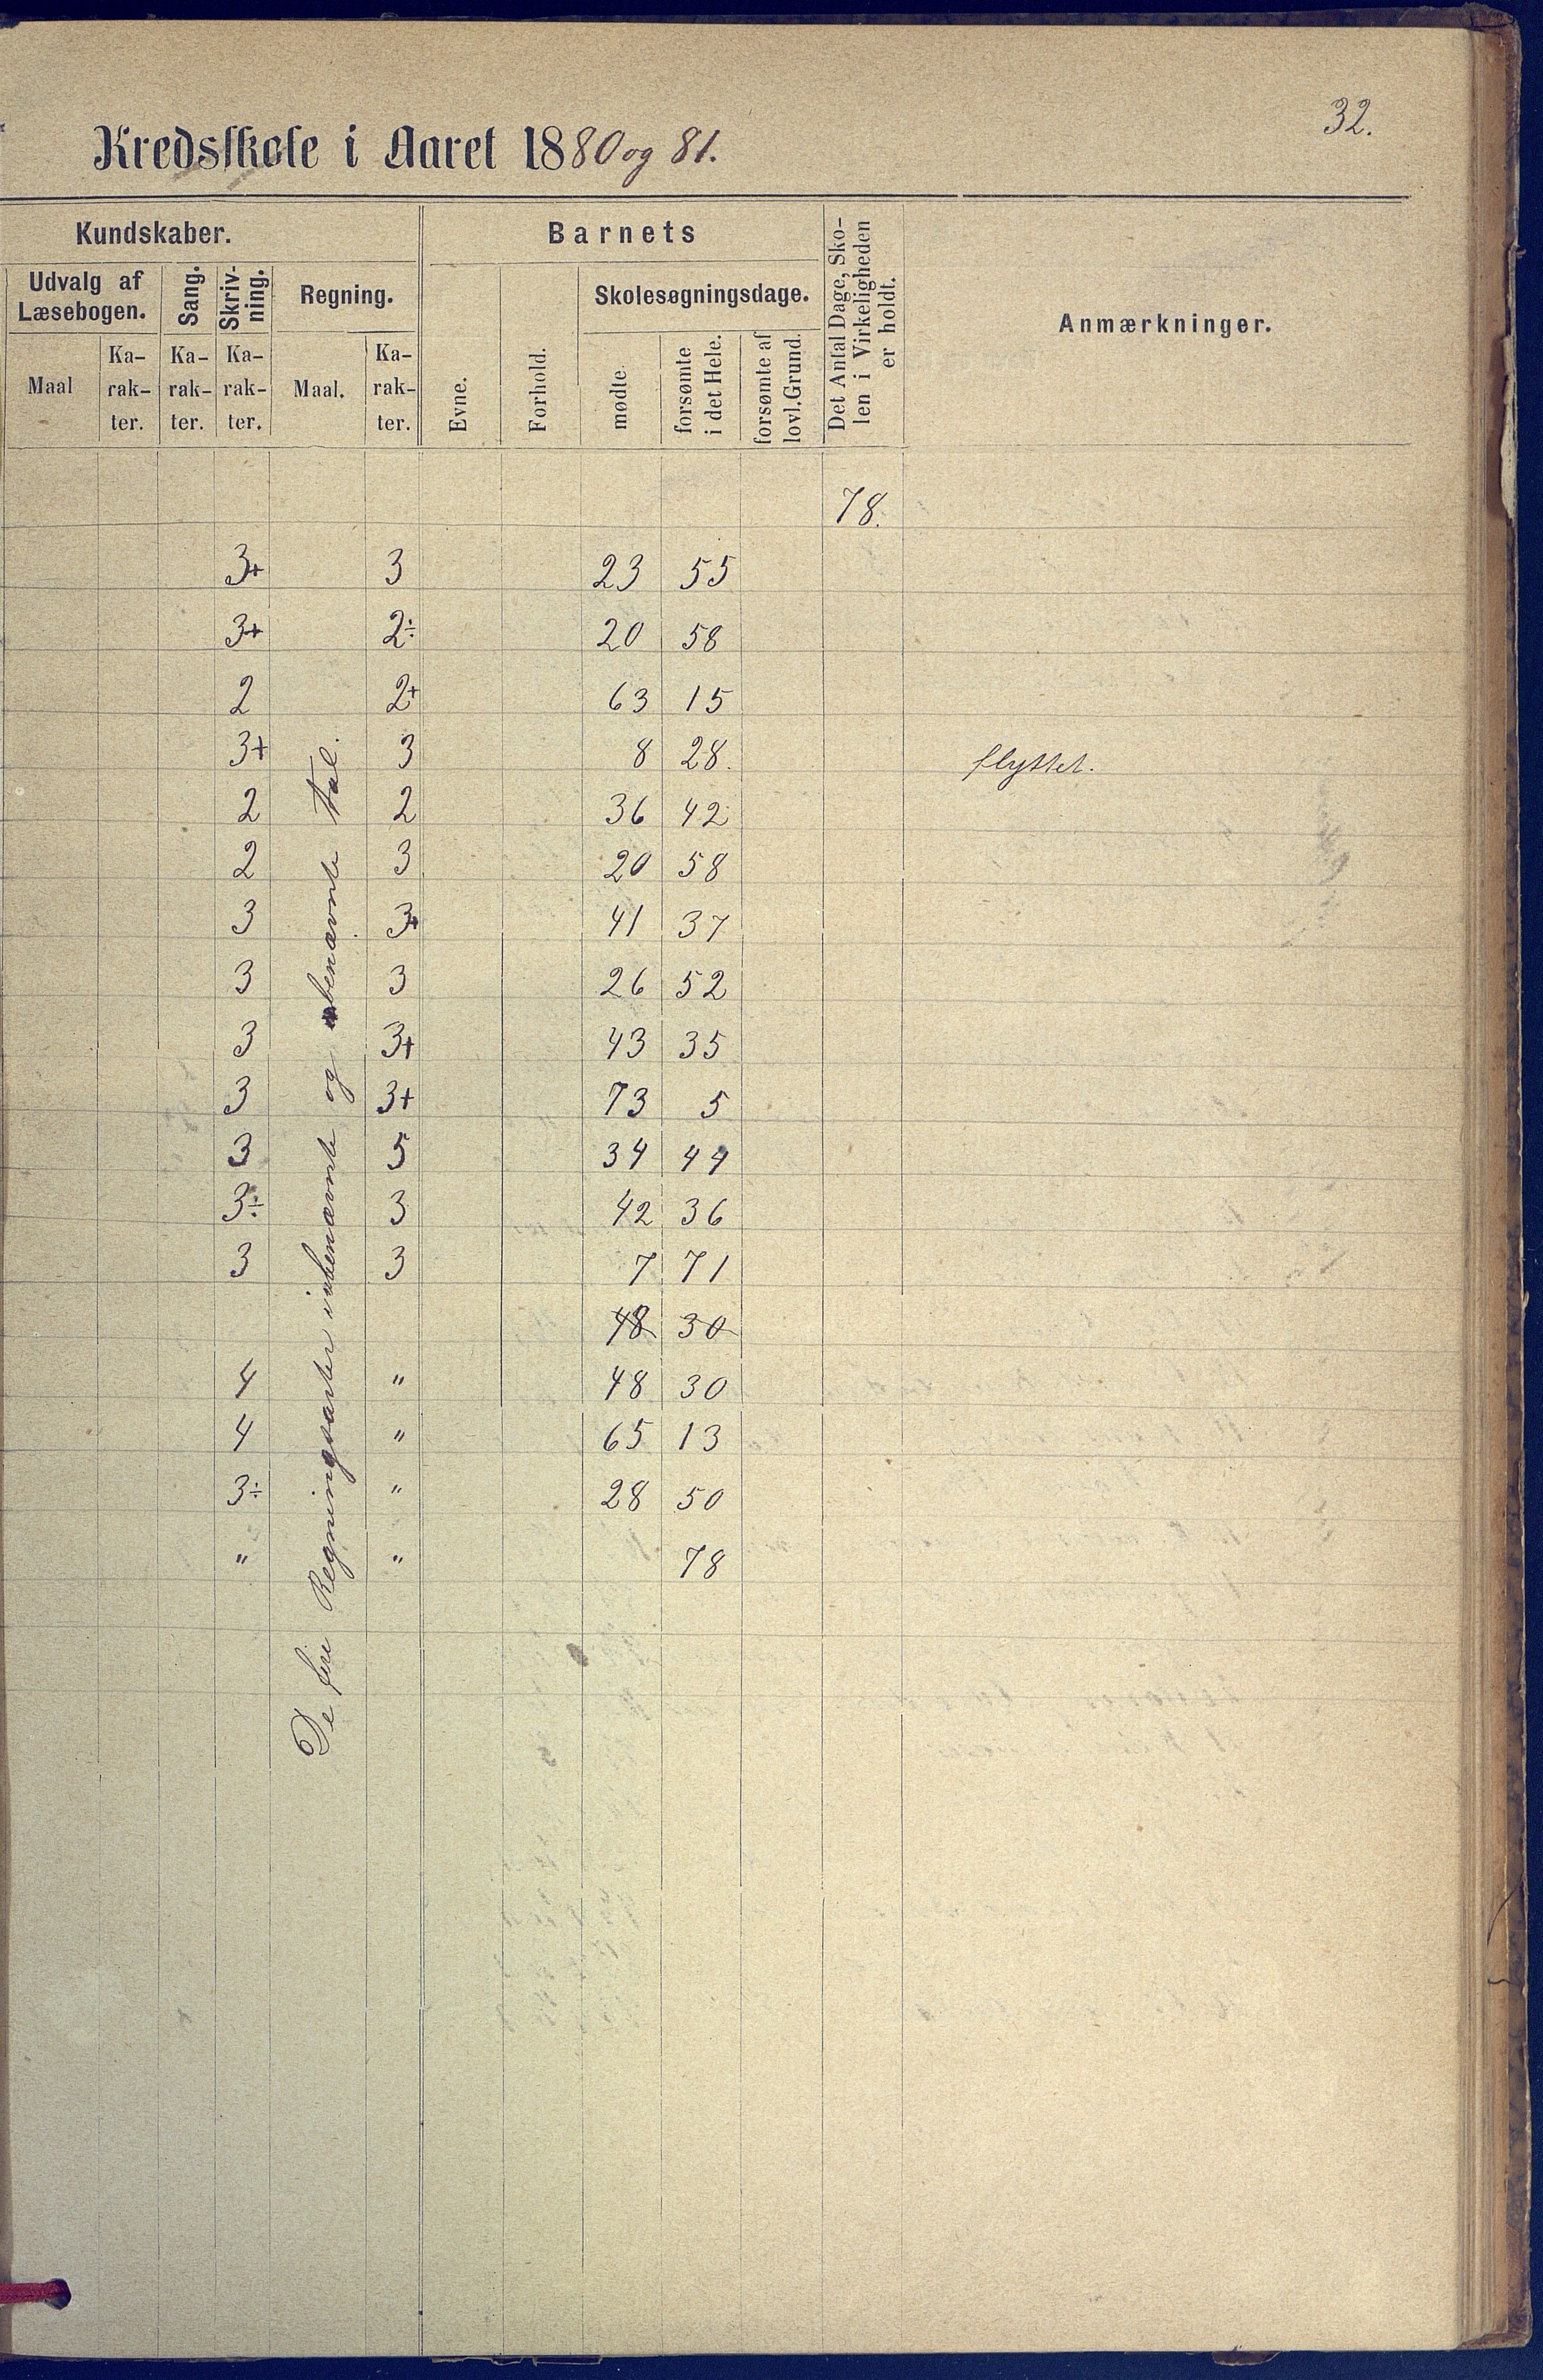 32.
Kredsskole i Aaret 1880 og 81.
Kundskaber.
Barnets
Det Antal Dage, Sko-
len i Virkeligheden
er holdt.
Anmærkninger.
Udvalg af
Læsebogen.
Sang.
Skriv-
ning.
Regning.
Evne.
Forhold.
Skolesøgningsdage.
Maal
Ka-
rak-
ter.
Ka-
rak-
ter.
Ka-
rak-
ter.
Maal.
Ka-
rak-
ter.
mødte.
forsømte
i det Hele.
forsømte af
lovl. Grund.
78.
3+ 3 23 55
3+ 2÷ 20 58
2 2+ 63 15
3+ 3 8 28. flyttet.
2 2 36 42
2 3 20 58
3 3+ 41 37
3 3 26 52
3 3+ 43 35
3 3+ 73 5
3 5 34 44
3÷ 3 42 36
3 3 7 71
48 30
4 " 48 30
4 " 65 13
3÷ " 28 50
" " 78
De fire Regningsarter i ubenævnte og benævnte Tal.